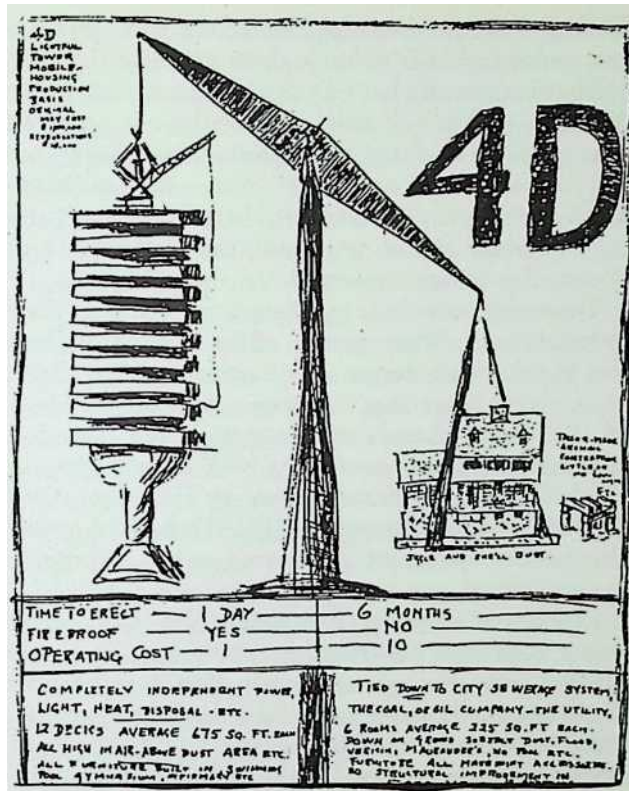 4D
LIGHTFUL
TOWER
MOBILE-
HOUSING
PRODUCTION
BASIS
ORIGINAL
MAY COST
4D
TAILOR-MADE
ARCHAIC
TIME TO ERECT — 1 DAY — 6 MONTHS
FIREPROOF — YES — NO
OPERATING COST — 1 — 10
COMPLETELY INDEPENDENT POWER,
LIGHT, HEAT, DISPOSAL - ETC.
12 DECKS AVERAGE 675 SQ. FT. EACH
ALL HIGH IN AIR - ABOVE DUST AREA ETC.
ALL FURNITURE BUILT IN, SWIMMING
POOL GYMNASIUM, INFIRMARY ETC
TIED DOWN TO CITY SEWERAGE SYSTEM,
THE COAL, OR OIL COMPANY - THE UTILITY,
6 ROOMS AVERAGE 225 SQ. FT EACH.
DOWN IN DUST, FLOOD,
VERMIN, MARAUDERS, NO POOL ETC.
FURNITURE ALL
NO STRUCTURAL IMPROVEMENT IN